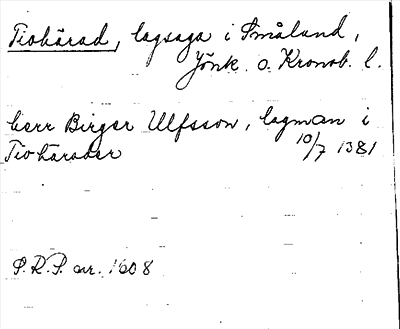 Tiohärad, lagsaga i Småland,
Jönk. o. Kronob. l.
herr Birger Ulfsson, lagman i
Tiohärader 10/7 1381
S.R.P. nr. 1608